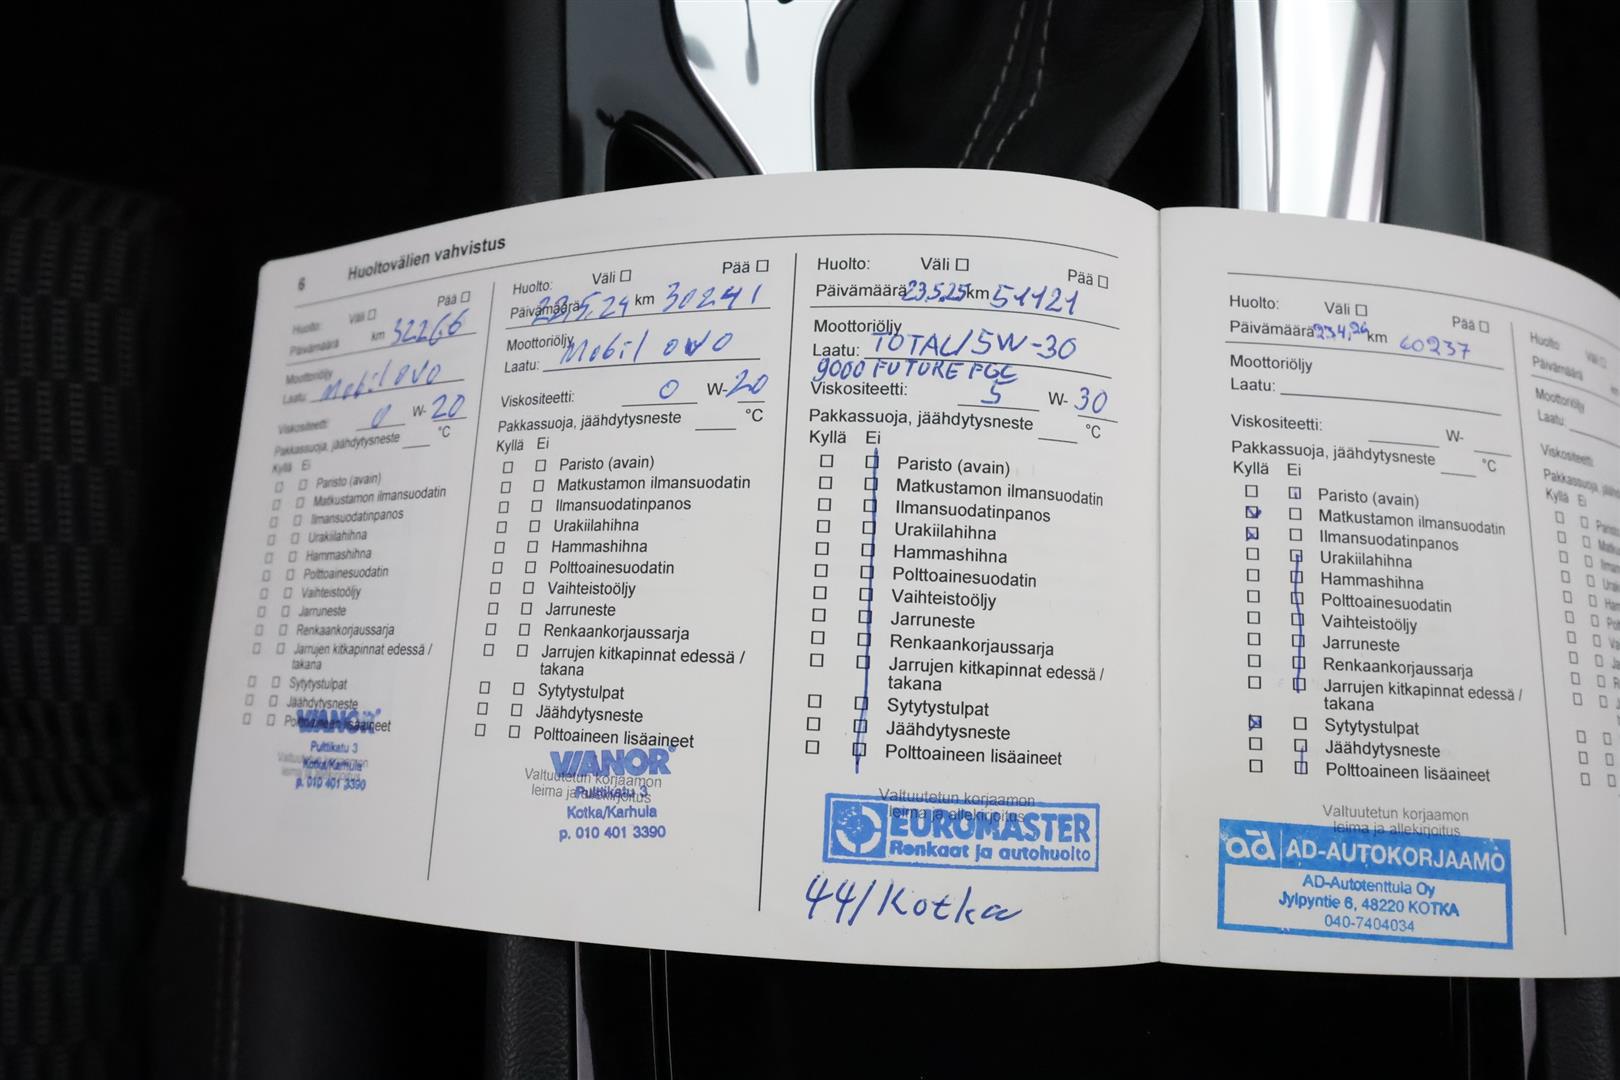 6 Huoltovälien vahvistus
Huolto: Väli Pää
Päivämäärä km 32266
Moottoriöljy
Laatu: Mobil 0W0
Viskositeetti: 0 W-20
Pakkassuoja, jäähdytysneste °C
Kyllä Ei
Paristo (avain)
Matkustamon ilmansuodatin
Ilmansuodatinpanos
Urakiilahihna
Hammashihna
Polttoainesuodatin
Vaihteistoöljy
Jarruneste
Renkaankorjaussarja
Jarrujen kitkapinnat edessä /
takana
Sytytystulpat
Jäähdytysneste
Polttoaineen lisäaineet
VIANOR
Pulttikatu 3
Kotka/Karhula
p. 010 401 3390
Huolto: Väli Pää
Päivämäärä 23.5.24 km 30241
Moottoriöljy
Laatu: Mobil 0W0
Viskositeetti: 0 W-20
Pakkassuoja, jäähdytysneste °C
Kyllä Ei
Paristo (avain)
Matkustamon ilmansuodatin
Ilmansuodatinpanos
Urakiilahihna
Hammashihna
Polttoainesuodatin
Vaihteistoöljy
Jarruneste
Renkaankorjaussarja
Jarrujen kitkapinnat edessä /
takana
Sytytystulpat
Jäähdytysneste
Polttoaineen lisäaineet
VIANOR
Valtuutetun korjaamon
leima ja allekirjoitus
Pulttikatu 3
Kotka/Karhula
p. 010 401 3390
Huolto: Väli Pää
Päivämäärä 23.5.25 km 51121
Moottoriöljy
Laatu: TOTAL/5W-30
9000 FUTURE FGC
Viskositeetti: 5 W-30
Pakkassuoja, jäähdytysneste °C
Kyllä Ei
Paristo (avain)
Matkustamon ilmansuodatin
Ilmansuodatinpanos
Urakiilahihna
Hammashihna
Polttoainesuodatin
Vaihteistoöljy
Jarruneste
Renkaankorjaussarja
Jarrujen kitkapinnat edessä /
takana
Sytytystulpat
Jäähdytysneste
Polttoaineen lisäaineet
Valtuutetun korjaamon
leima ja allekirjoitus
EUROMASTER
Renkaat ja autohuolto
44/Kotka
Huolto: Väli Pää
Päivämäärä km 60237
Moottoriöljy
Laatu:
Viskositeetti: W-
Pakkassuoja, jäähdytysneste °C
Kyllä Ei
Paristo (avain)
Matkustamon ilmansuodatin
Ilmansuodatinpanos
Urakiilahihna
Hammashihna
Polttoainesuodatin
Vaihteistoöljy
Jarruneste
Renkaankorjaussarja
Jarrujen kitkapinnat edessä /
takana
Sytytystulpat
Jäähdytysneste
Polttoaineen lisäaineet
Valtuutetun korjaamon
leima ja allekirjoitus
ad AD-AUTOKORJAAMO
AD-Autotenttula Oy
Jylpyntie 6, 48220 KOTKA
040-7404034
Huolto:
Päivämäärä
Moottoriöljy
Laatu:
Viskositeetti:
Kyllä Ei